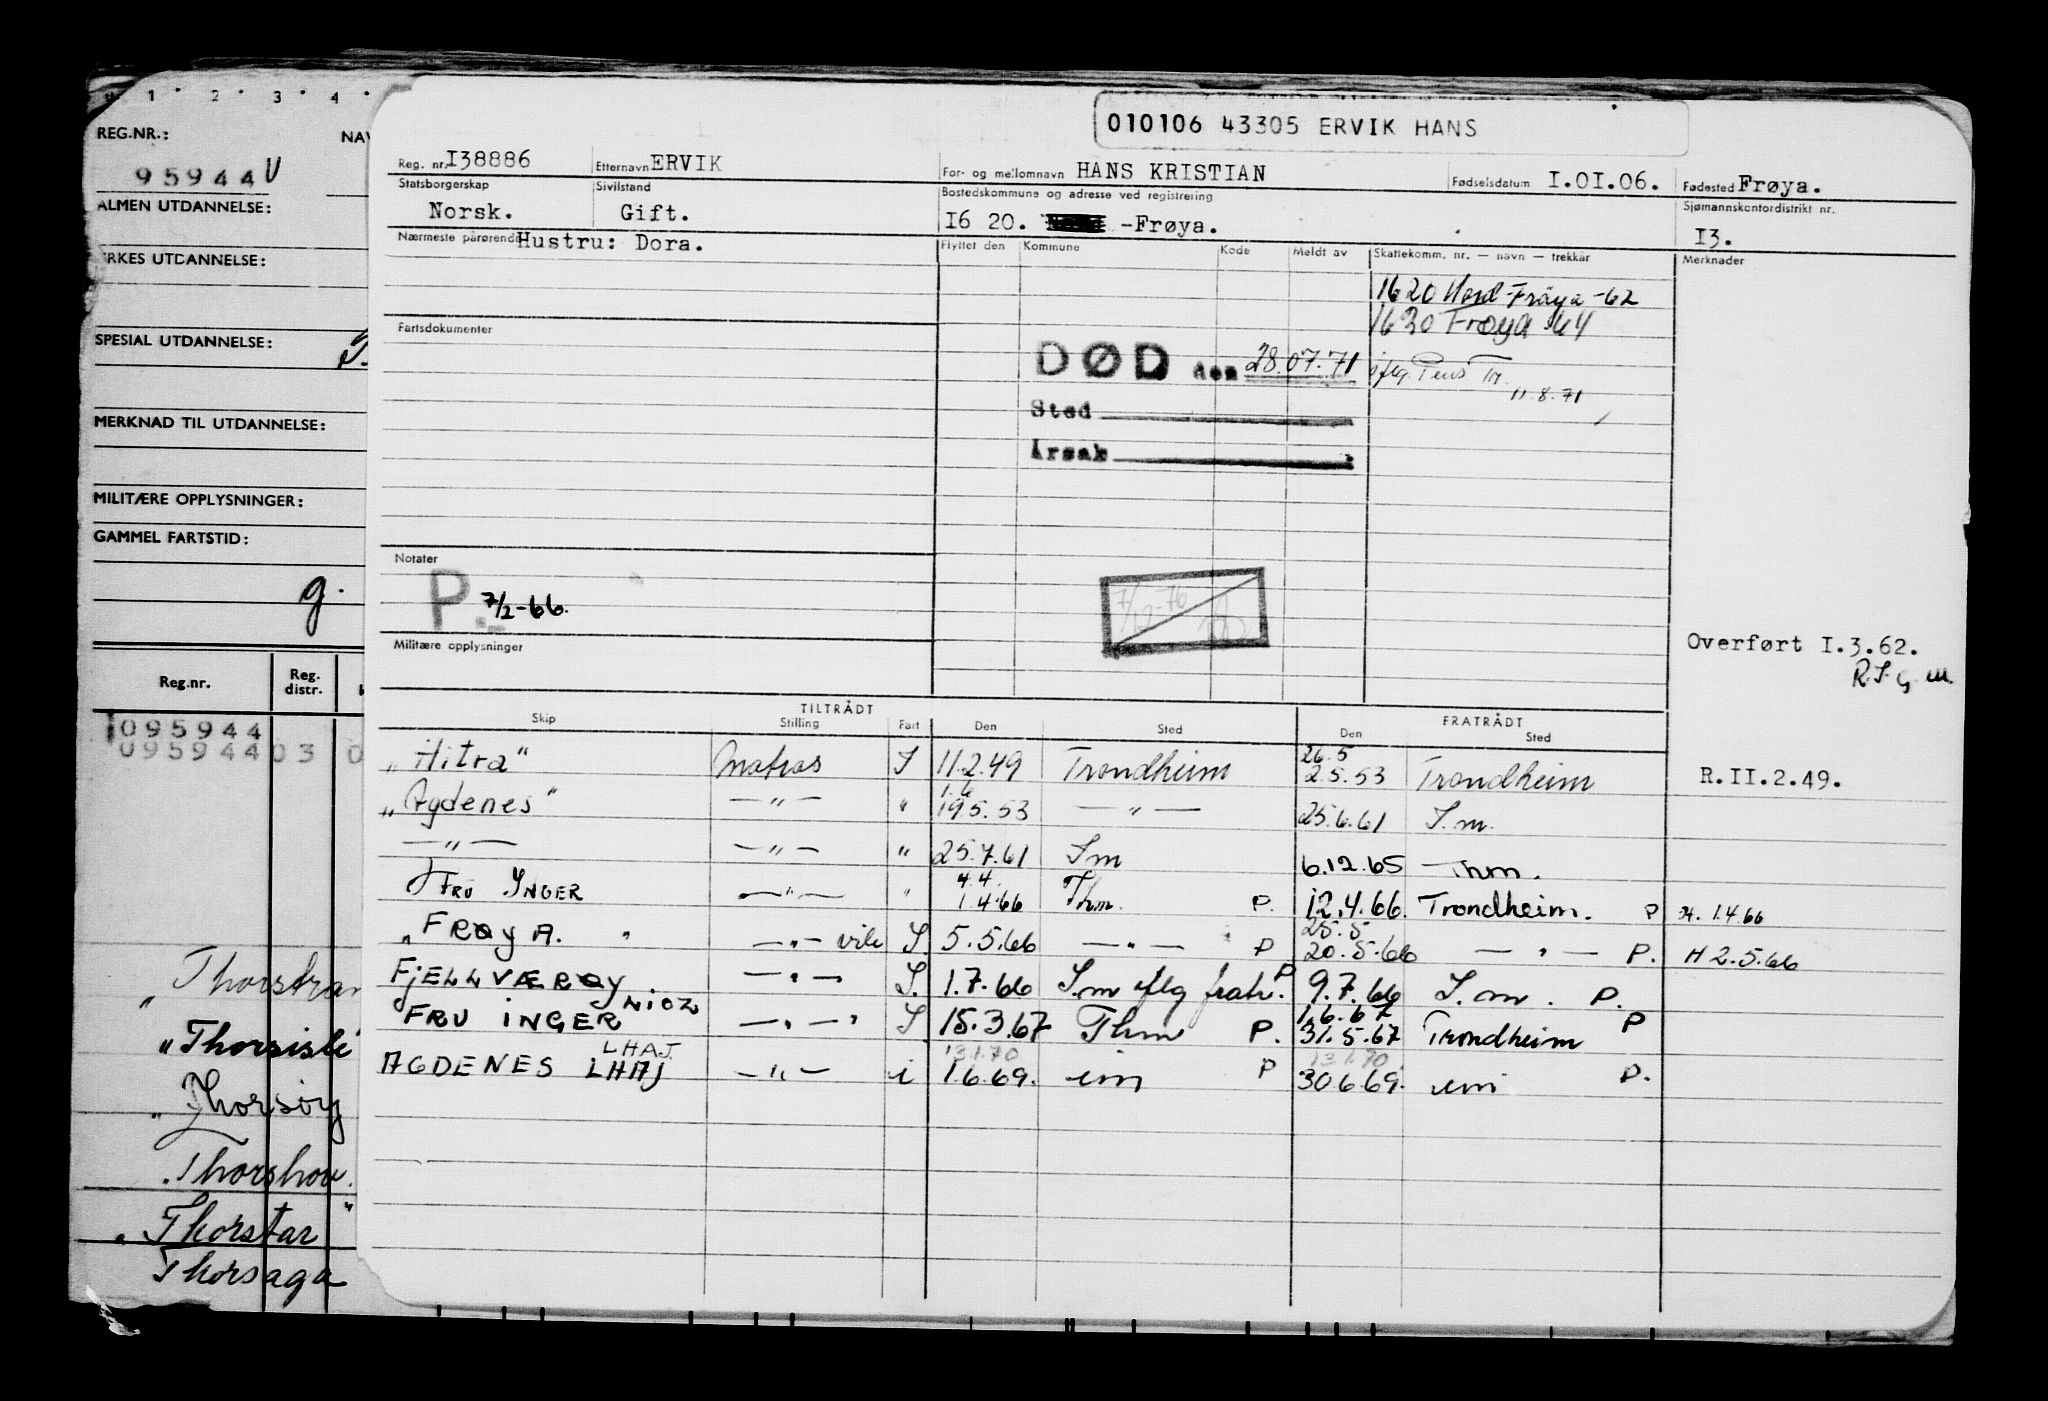 1 2 3 4
REG.NR.:
95944 V
ALMEN UTDANNELSE:
SPESIAL UTDANNELSE:
MERKNAD TIL UTDANNELSE:
MILITÆRE OPPLYSNINGER:
GAMMEL FARTSTID:
g.
Reg.nr. Reg. distr.
1095944
09594403 0
"Thorsisle
" Thorsøy
"Thorshov
"Thorstar"
Thorsaga
010106 43305 ERVIK HANS
Reg. nr. I38886 Etternavn ERVIK For- og mellomnavn HANS KRISTIAN Fødselsdatum I.OI.06. Fødested Frøya.
Statsborgerskap Sivilstand Bostedskommune og adresse ved registrering Sjømannskontordistrikt nr.
Norsk. Gift. I6 20. -Frøya. I3.
Nærmeste pårørende Hustru: Dora. Flyttet den Kommune Kode Meldt av Skattekomm. nr. — navn — trekkår Merknader
1620 Nord-Frøya -62
1620 Frøya 64
Fartsdokumenter
DØD den 28.07.71 iflg. Pens Tr.
11.8.71
Sted
Årsak
Notater
P. 7/2-66.
7/12-76
Militære opplysninger
Overført I.3.62.
TILTRÅDT FRATRÅDT
Skip Stilling Fart Den Sted Den Sted
26.5
"Hitra" Matros S 11.2.49 Trondheim 2.5.53 Trondheim R.II.2.49.
1.6
"Agdenes" —"— " 19.5.53 —"— 25.6.61 S.m.
—"— —"— " 25.7.61 Sm 6.12.65 Thm.
4.4.
FRU INGER —"— " 1.4.66 Thm. P. 12.4.66. Trondheim. P H. 1.4.66
25.5
"FRØYA. " —"— vik S. 5.5.66 —"— P 20.5.66 —"— P. H 2.5.66
FJELLVÆRØY —"— S. 1.7.66 S.m iflg fratr. P 9.7.66 S.m. P.
LIOZ 1.6.67
FRU INGER —"— S 15.3.67 Thm P. 31.5.67 Trondheim P
LHAJ 13.1.70 13.1.70
AGDENES LHAJ —"— i 1.6.69. im P 30.6.69. im P.